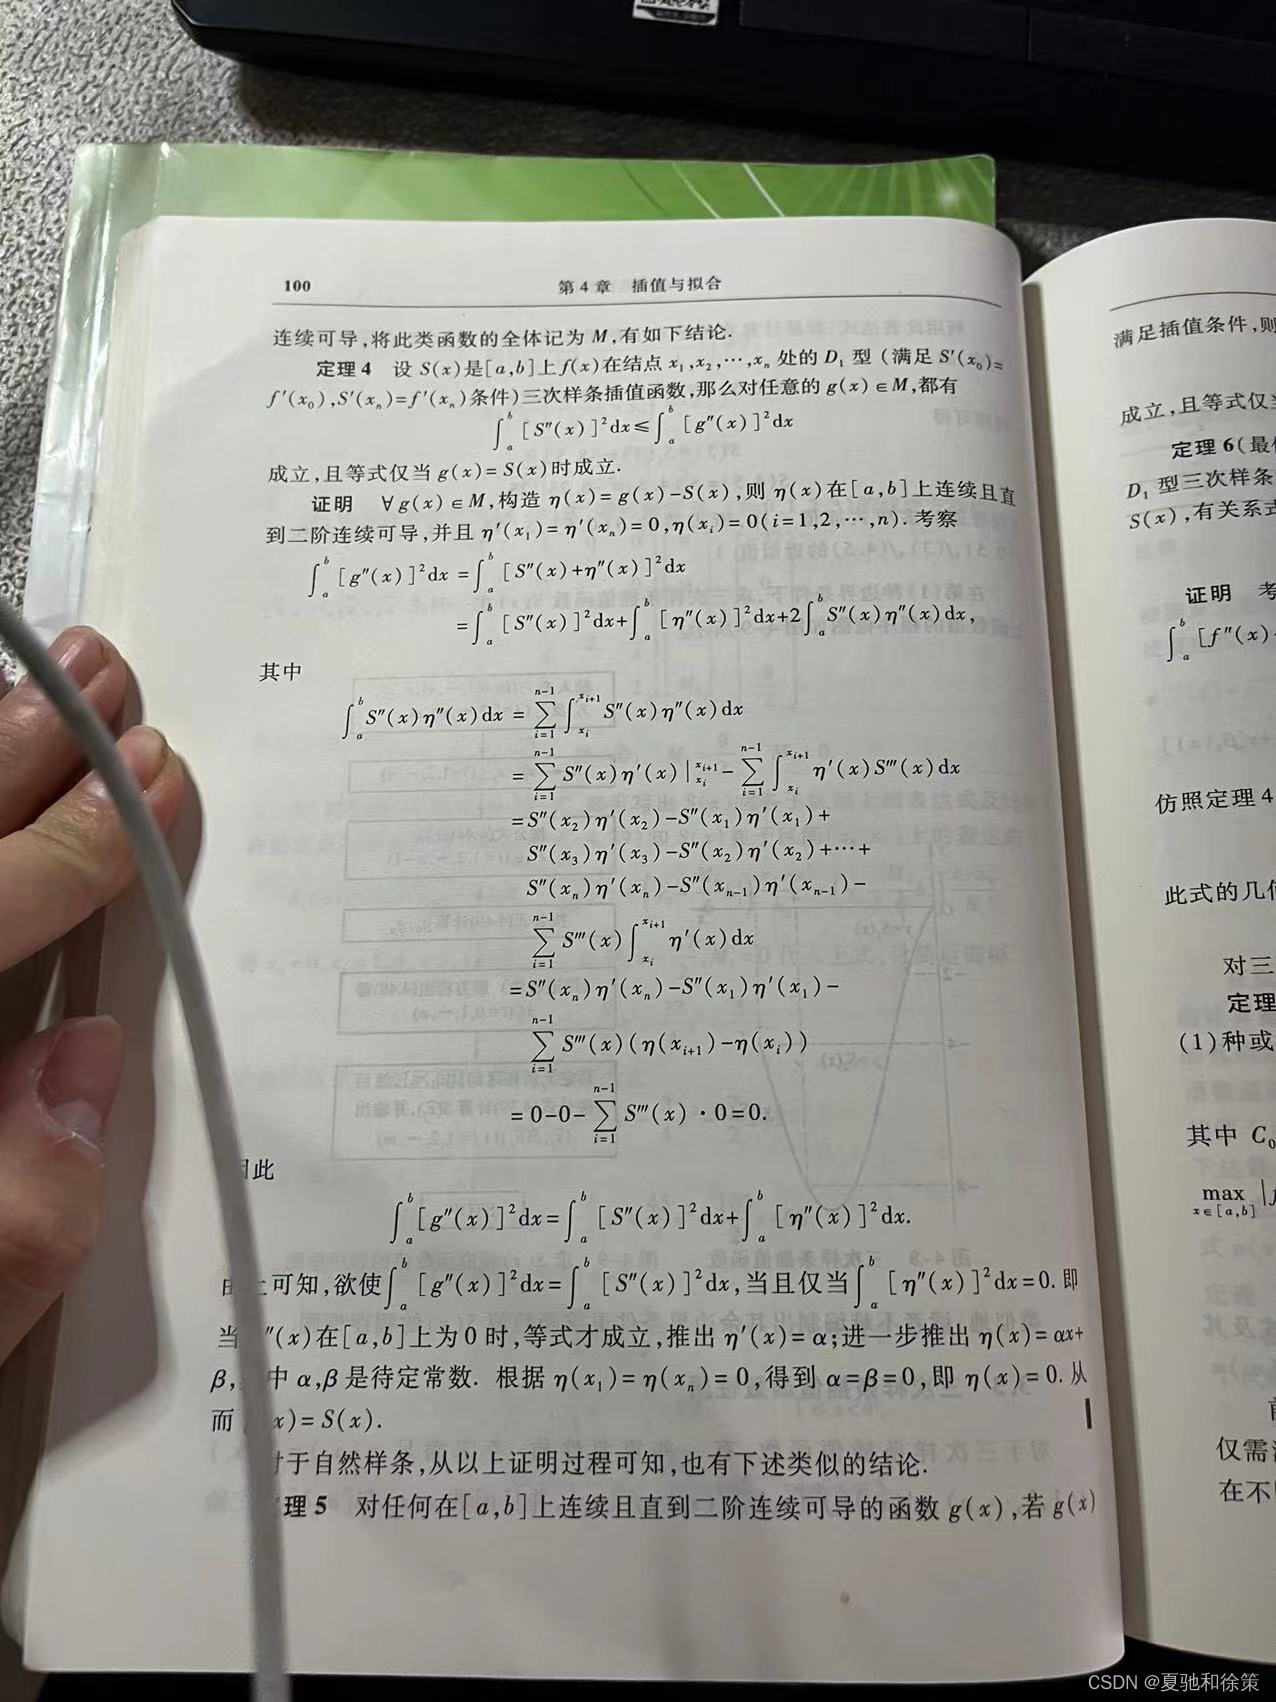 100 第 4 章 插值与拟合
连续可导,将此类函数的全体记为 M,有如下结论.
定理 4 设 S(x)是[a,b]上 f(x)在结点 x₁,x₂,⋯,xₙ 处的 D₁ 型 (满足 S′(x₀)=
f′(x₀),S′(xₙ)=f′(xₙ)条件)三次样条插值函数,那么对任意的 g(x)∈M,都有
∫ₐᵇ[S″(x)]²dx≤∫ₐᵇ[g″(x)]²dx
成立,且等式仅当 g(x)=S(x)时成立.
证明 ∀g(x)∈M,构造 η(x)=g(x)-S(x),则 η(x)在[a,b]上连续且直
到二阶连续可导,并且 η′(x₁)=η′(xₙ)=0,η(xᵢ)=0(i=1,2,⋯,n). 考察
∫ₐᵇ[g″(x)]²dx =∫ₐᵇ[S″(x)+η″(x)]²dx
=∫ₐᵇ[S″(x)]²dx+∫ₐᵇ[η″(x)]²dx+2∫ₐᵇS″(x)η″(x)dx,
其中
∫ₐᵇS″(x)η″(x)dx = ∑_{i=1}^{n-1}∫_{xᵢ}^{xᵢ₊₁}S″(x)η″(x)dx
= ∑_{i=1}^{n-1}S″(x)η′(x)|_{xᵢ}^{xᵢ₊₁}-∑_{i=1}^{n-1}∫_{xᵢ}^{xᵢ₊₁}η′(x)S‴(x)dx
=S″(x₂)η′(x₂)-S″(x₁)η′(x₁)+
S″(x₃)η′(x₃)-S″(x₂)η′(x₂)+⋯+
S″(xₙ)η′(xₙ)-S″(xₙ₋₁)η′(xₙ₋₁)-
∑_{i=1}^{n-1}S‴(x)∫_{xᵢ}^{xᵢ₊₁}η′(x)dx
=S″(xₙ)η′(xₙ)-S″(x₁)η′(x₁)-
∑_{i=1}^{n-1}S‴(x)(η(xᵢ₊₁)-η(xᵢ))
= 0-0-∑_{i=1}^{n-1}S‴(x)·0=0.
此
∫ₐᵇ[g″(x)]²dx=∫ₐᵇ[S″(x)]²dx+∫ₐᵇ[η″(x)]²dx.
可知,欲使∫ₐᵇ[g″(x)]²dx=∫ₐᵇ[S″(x)]²dx,当且仅当∫ₐᵇ[η″(x)]²dx=0. 即
当 ″(x)在[a,b]上为0时,等式才成立,推出 η′(x)=α;进一步推出 η(x)=αx+
β, 中 α,β 是待定常数. 根据 η(x₁)=η(xₙ)=0,得到 α=β=0,即 η(x)=0. 从
而 x)=S(x).
于自然样条,从以上证明过程可知,也有下述类似的结论.
理 5 对任何在[a,b]上连续且直到二阶连续可导的函数 g(x),若 g(x)
满足插值条件,则
成立,且等式仅
定理 6(最
D₁ 型三次样条
S(x),有关系
证明 考
∫ₐᵇ[f″(x)
仿照定理 4
此式的几
对三
定理
(1)种或
其中 C₀
max_{x∈[a,b]}
仅需
在不
CSDN @夏驰和徐策